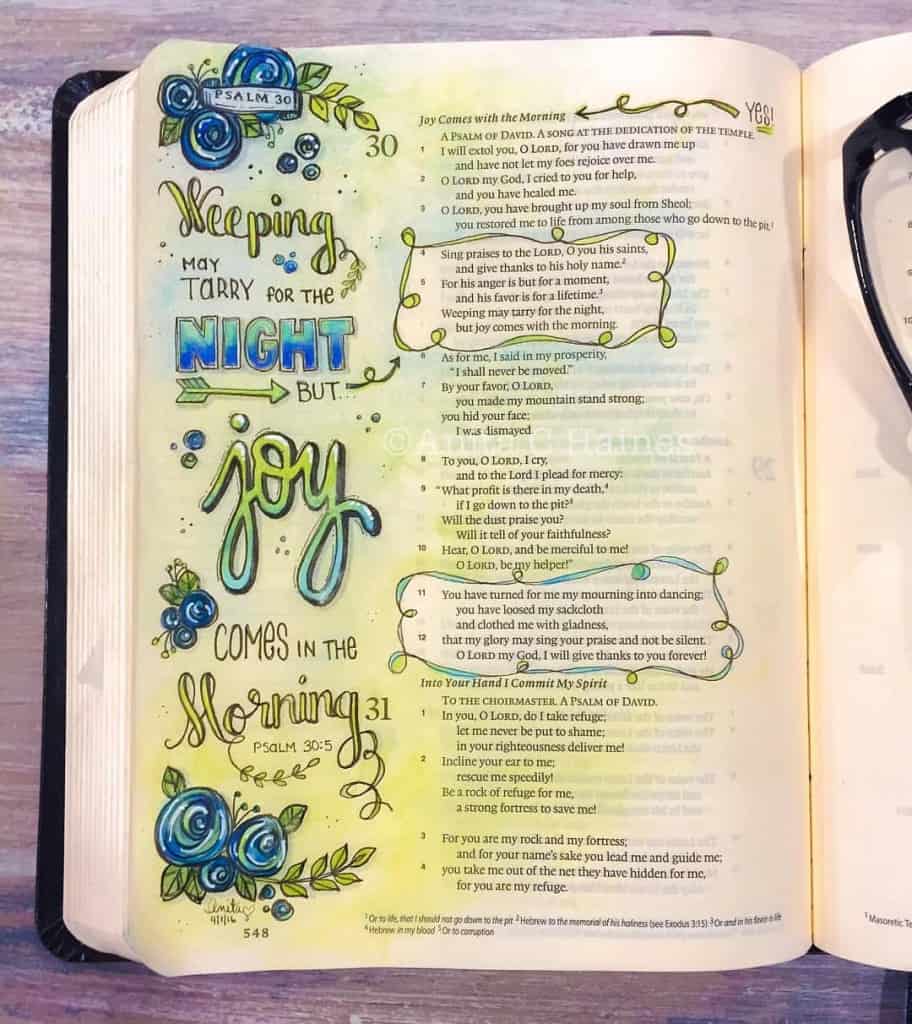 PSALM 30
30
Weeping
MAY
TARRY FOR THE
NIGHT
BUT...
joy
COMES IN THE
Morning
PSALM 30:5
Anita
4/1/16
548
Joy Comes with the Morning
YES!
A PSALM OF DAVID. A SONG AT THE DEDICATION OF THE TEMPLE.
1 I will extol you, O LORD, for you have drawn me up
and have not let my foes rejoice over me.
2 O LORD my God, I cried to you for help,
and you have healed me.
3 O LORD, you have brought up my soul from Sheol;
you restored me to life from among those who go down to the pit.1
4 Sing praises to the LORD, O you his saints,
and give thanks to his holy name.2
5 For his anger is but for a moment,
and his favor is for a lifetime.3
Weeping may tarry for the night,
but joy comes with the morning.
6 As for me, I said in my prosperity,
“I shall never be moved.”
7 By your favor, O LORD,
you made my mountain stand strong;
you hid your face;
I was dismayed.
©Anita C Haines
8 To you, O LORD, I cry,
and to the Lord I plead for mercy:
9 “What profit is there in my death,4
if I go down to the pit?5
Will the dust praise you?
Will it tell of your faithfulness?
10 Hear, O LORD, and be merciful to me!
O LORD, be my helper!”
11 You have turned for me my mourning into dancing;
you have loosed my sackcloth
and clothed me with gladness,
12 that my glory may sing your praise and not be silent.
O LORD my God, I will give thanks to you forever!
Into Your Hand I Commit My Spirit
31
TO THE CHOIRMASTER. A PSALM OF DAVID.
1 In you, O LORD, do I take refuge;
let me never be put to shame;
in your righteousness deliver me!
2 Incline your ear to me;
rescue me speedily!
Be a rock of refuge for me,
a strong fortress to save me!
3 For you are my rock and my fortress;
and for your name's sake you lead me and guide me;
4 you take me out of the net they have hidden for me,
for you are my refuge.
1 Or to life, that I should not go down to the pit 2 Hebrew to the memorial of his holiness (see Exodus 3:15) 3 Or and in his favor is life
4 Hebrew in my blood 5 Or to corruption
1 Masoretic